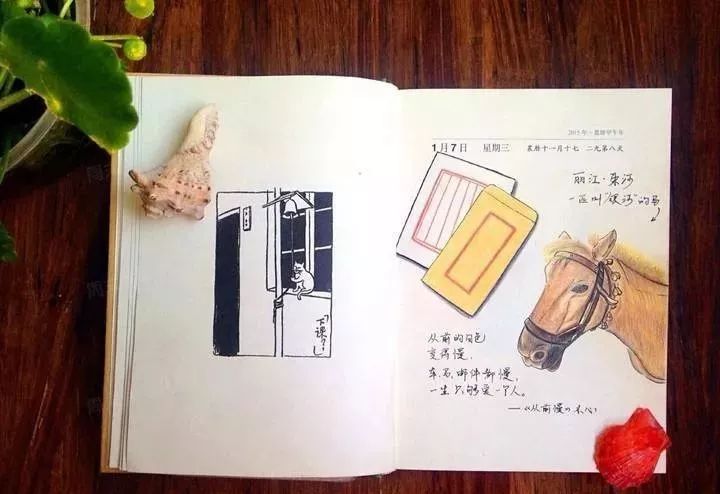 「下课了!」
2015年·農曆甲午年
1月7日 星期三 農曆十一月十七 二九第八天
丽江·束河
一匹叫“银河”的马
从前的日色
变得慢,
车、马、邮件都慢,
一生只够爱一个人。
——《从前慢》木心